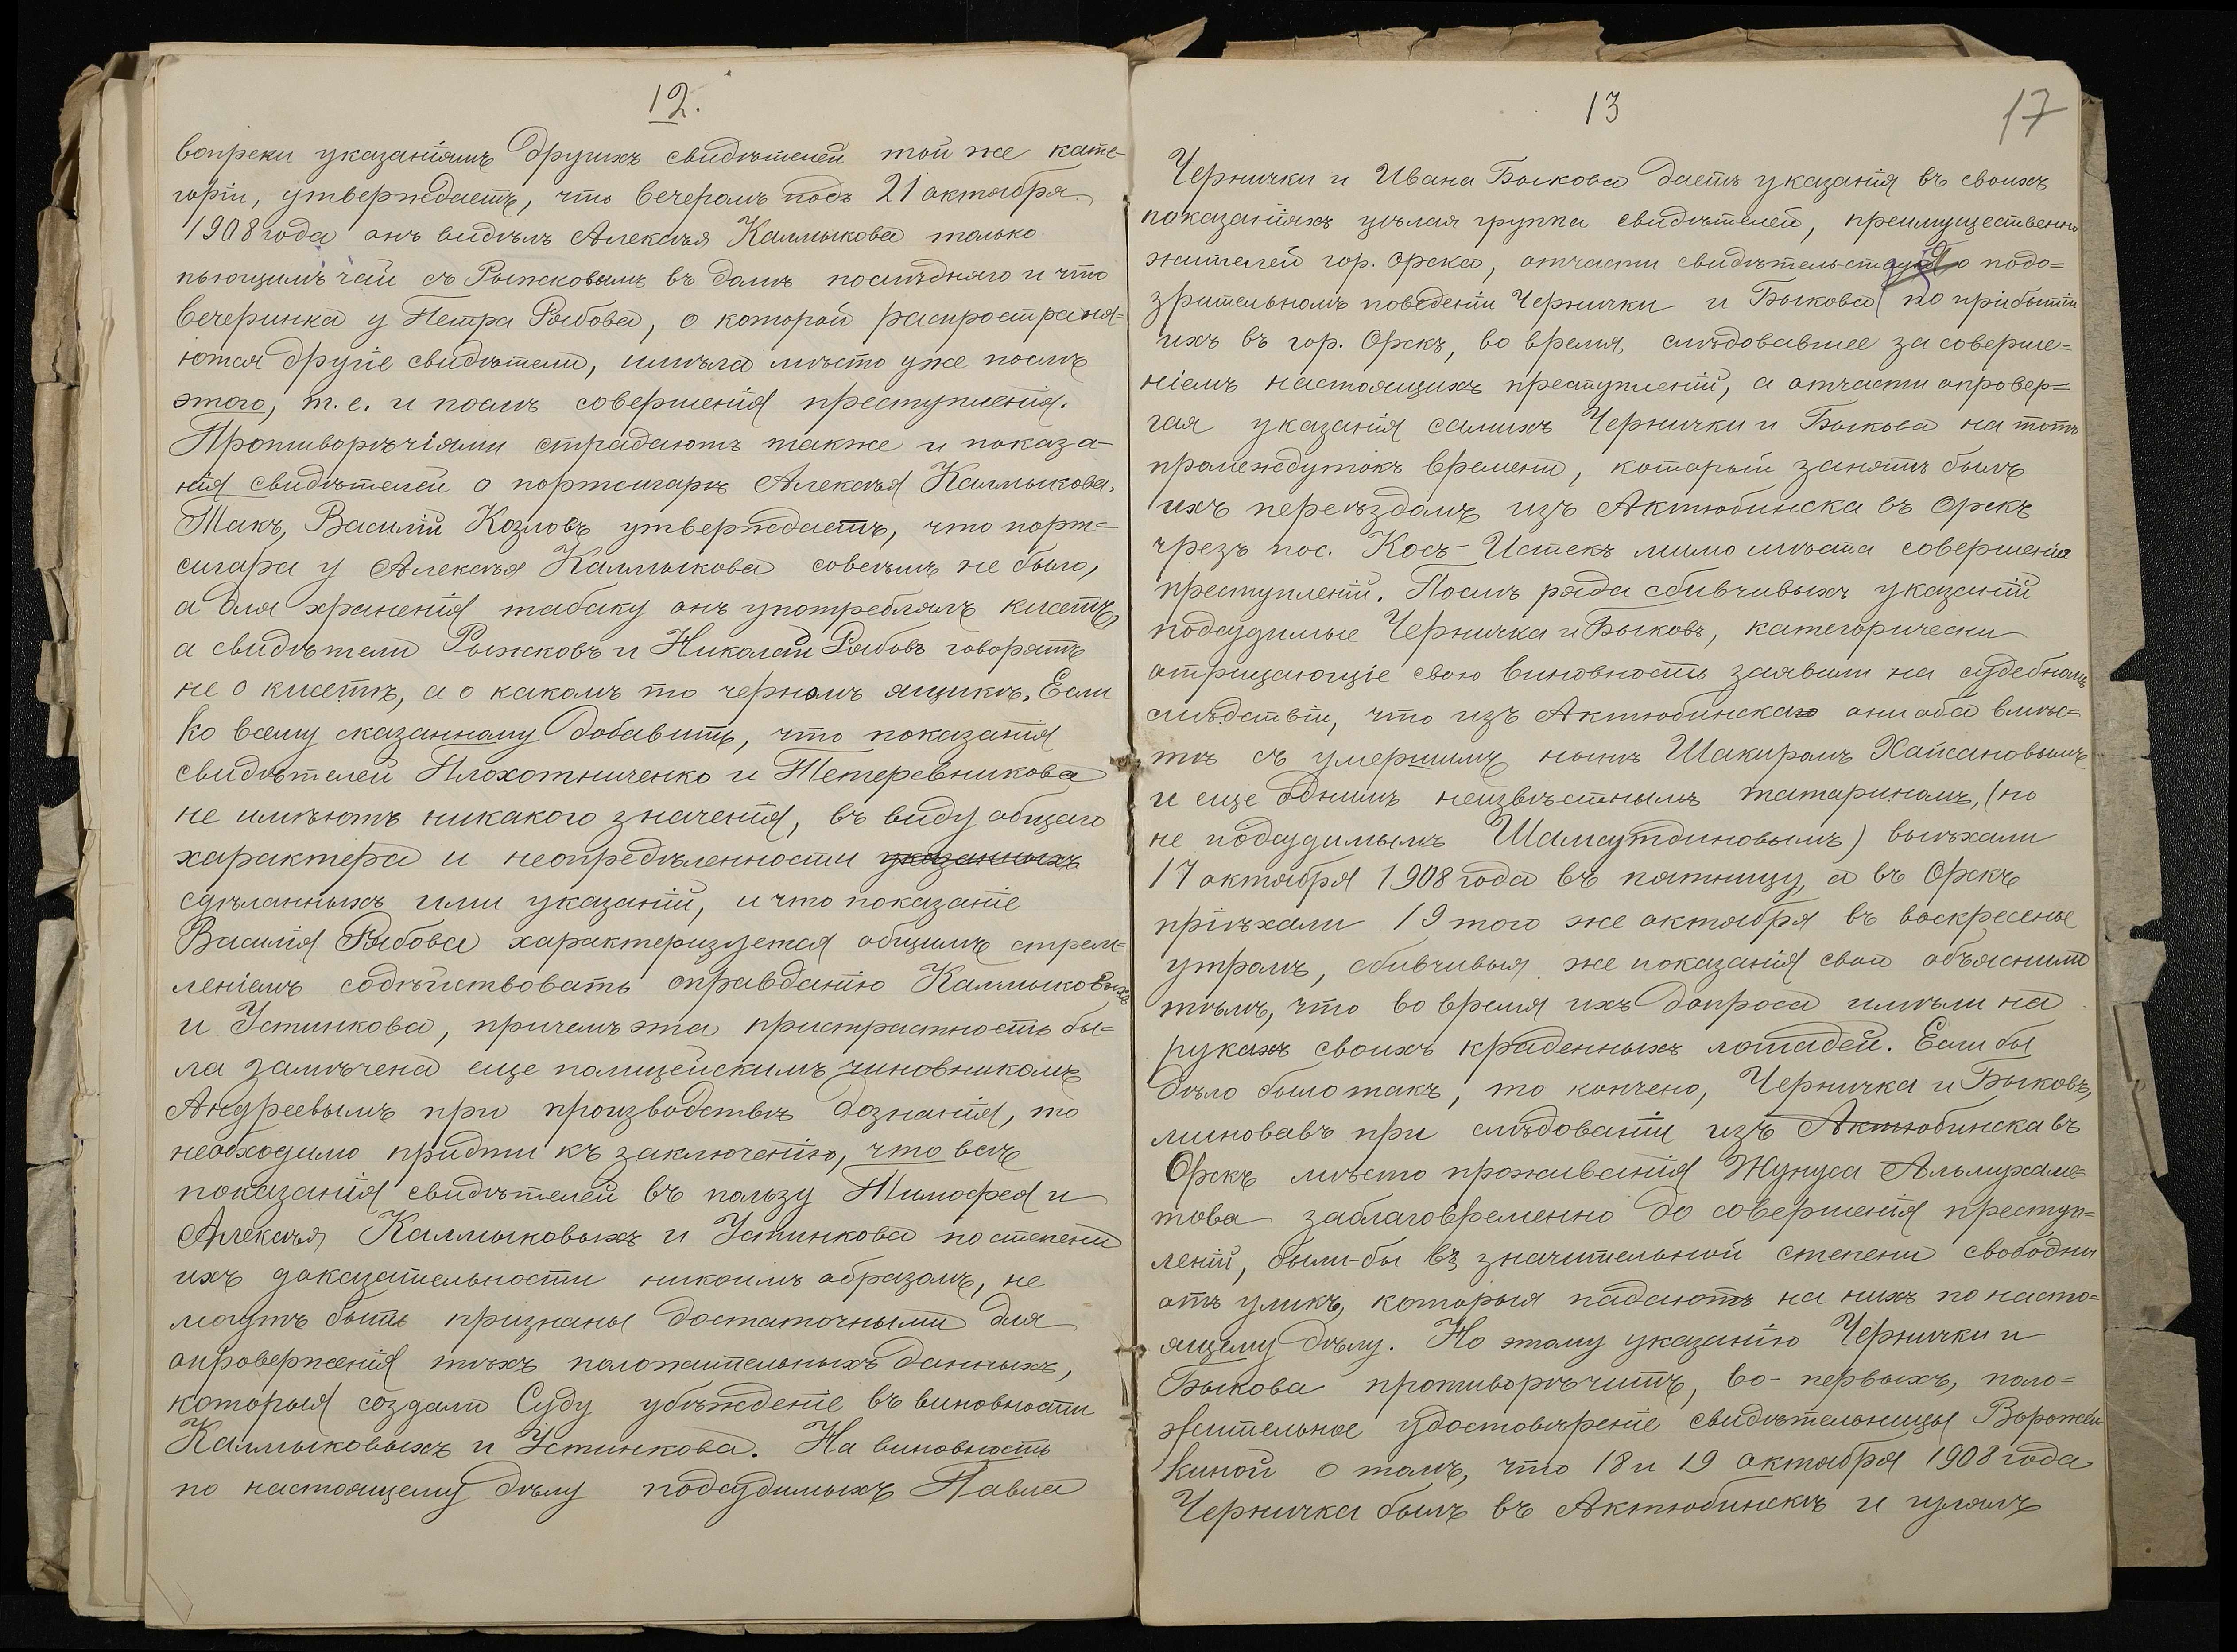 12.
вопреки указаніямъ другихъ свидѣтелей той же кате-
горіи, утверждаетъ, что вечеромъ подъ 21 октября
1908 года онъ видѣлъ Алексѣя Калмыкова только
пьющимъ чай съ Рыжковымъ въ домѣ послѣдняго и что
вечеринка у Петра Рябова, о которой распространя-
ются другіе свидѣтели, имѣла мѣсто уже послѣ
этого, т. е. и послѣ совершенія преступленія.
Противорѣчіями страдаютъ также и показа-
нія свидѣтелей о портсигарѣ Алексѣя Калмыкова.
Такъ, Василій Козловъ утверждаетъ, что порт-
сигара у Алексѣя Калмыкова совсѣмъ не было,
а для храненія табаку онъ употреблялъ кисетъ,
а свидѣтели Рыжковъ и Николай Рябовъ говорятъ
не о кисетѣ, а о какомъ то черномъ ящикѣ. Если
ко всему сказанному добавить, что показанія
свидѣтелей Плохотниченко и Тетеревникова
не имѣютъ никакого значенія, въ виду общаго
характера и неопредѣленности указанныхъ
сдѣланныхъ ими указаній, и что показаніе
Василія Рябова характеризуется общимъ стрем-
леніемъ содѣйствовать оправданію Калмыковыхъ
и Устинкова, причемъ эта пристрастность бы-
ла замѣчена еще полицейскимъ чиновникомъ
Андреевымъ при производствѣ дознанія, то
необходимо придти къ заключенію, что всѣ
показанія свидѣтелей въ пользу Тимофея и
Алексѣя Калмыковыхъ и Устинкова по степени
ихъ доказательности никоимъ образомъ, не
могутъ быть признаны достаточными для
опроверженія тѣхъ положительныхъ данныхъ,
которыя создали Суду убѣжденіе въ виновности
Калмыковыхъ и Устинкова. На виновность
по настоящему дѣлу подсудимыхъ Павла
13
17
Чернички и Ивана Быкова даетъ указанія въ своихъ
показаніяхъ цѣлая группа свидѣтелей, преимущественно
жителей гор. Орска, отчасти свидѣтельствуя о подо-
зрительномъ поведеніи Чернички и Быкова по прибытіи
ихъ въ гор. Орскъ, во время, слѣдовавшее за соверше-
ніемъ настоящихъ преступленій, а отчасти опровер-
гая указанія самихъ Чернички и Быкова на тотъ
промежутокъ времени, который занятъ былъ
ихъ переѣздомъ изъ Актюбинска въ Орскъ
чрезъ пос. Косъ-Истекъ мимо мѣста совершенія
преступленій. Послѣ ряда сбивчивыхъ указаній
подсудимые Черничка и Быковъ, категорически
отрицающіе свою виновность заявили на судебномъ
слѣдствіи, что изъ Актюбинскаго они оба вмѣс-
тѣ съ умершимъ нынѣ Шакиромъ Хайсановымъ
и еще однимъ неизвѣстнымъ татариномъ, (но
не подсудимымъ Шамсутдиновымъ) выѣхали
17 октября 1908 года въ пятницу, а въ Орскъ
пріѣхали 19 того же октября въ воскресенье
утромъ, сбивчивыя же показанія свои объяснили
тѣмъ, что во время ихъ допроса имѣли на
рукахъ своихъ краденныхъ лошадей. Если бы
дѣло было такъ, то кончено, Черничка и Быковъ,
миновавъ при слѣдованіи изъ Актюбинска въ
Орскъ мѣсто проживанія Жунуса Альмухаме-
това заблаговременно до совершенія преступ-
леній, были-бы въ значительной степени свободны
отъ уликъ, которыя падаютъ на нихъ по насто-
ящему дѣлу. Но этому указанію Чернички и
Быкова противорѣчитъ, во-первыхъ, поло-
жительное удостовѣреніе свидѣтельницы Ворожей
киной о томъ, что 18 и 19 октября 1908 года
Черничка былъ въ Актюбинскѣ и гулялъ